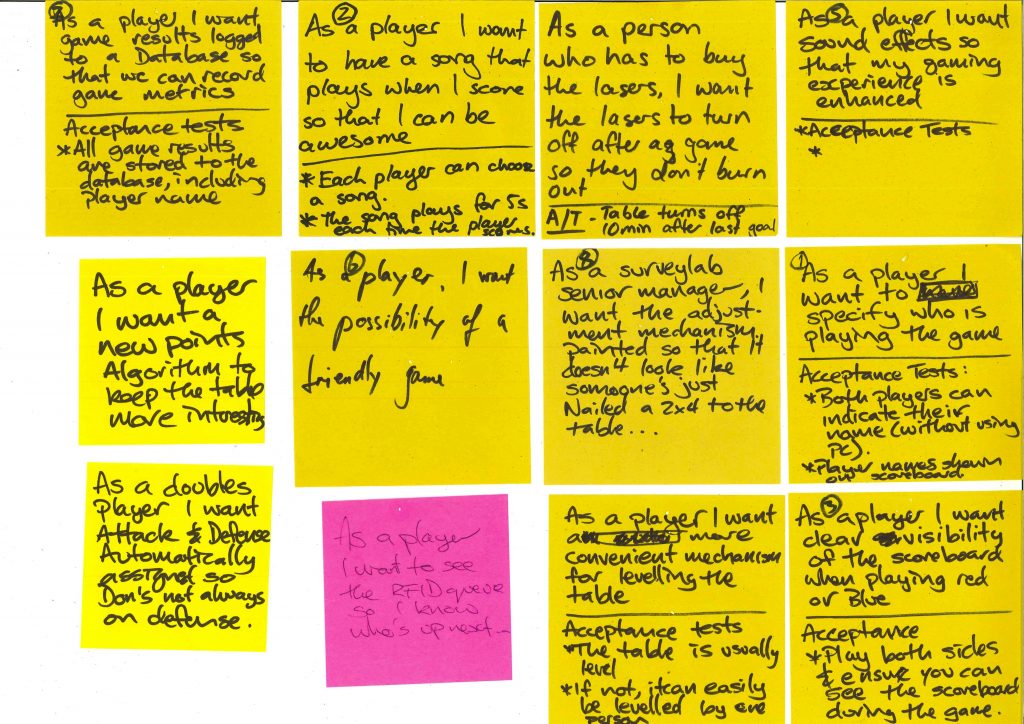 7
As a player, I want
game results logged
to a Database so
that we can record
game metrics
Acceptance tests
* All game results
are stored to the
database, including
player name
2
As a player I want
to have a song that
plays when I score
so that I can be
awesome
* Each player can choose
a song.
* The song plays for 5s
each time the player
scores.
As a person
who has to buy
the lasers, I want
the lasers to turn
off after a game
so they don't burn
out
A/T - Table turns off
10min after last goal
5
As a player I want
sound effects so
that my gaming
experience is
enhanced
* Acceptance Tests
*
As a player
I want a
new points
Algorithm to
keep the table
more interesting
6
As a player, I want
the possibility of a
friendly game
8
As a surveylab
senior manager, I
want the adjust-
ment mechanism
painted so that it
doesn't look like
someone's just
Nailed a 2x4 to the
table...
1
As a player I
want to
specify who is
playing the game
Acceptance Tests:
* Both players can
indicate their
name (without using
PC).
* Player names shown
on scoreboard
As a doubles
player I want
Attack & Defense
Automatically
assigned so
Don's not always
on defense.
As a player
I want to see
the RFID queue
so I know
who's up next...
As a player I want
a more
convenient mechanism
for levelling the
table
Acceptance tests
* The table is usually
level
* If not, it can easily
be levelled by one
person
3
As a player I want
clear visibility
of the scoreboard
when playing red
or Blue
Acceptance
* Play both sides
& ensure you can
see the scoreboard
during the game.